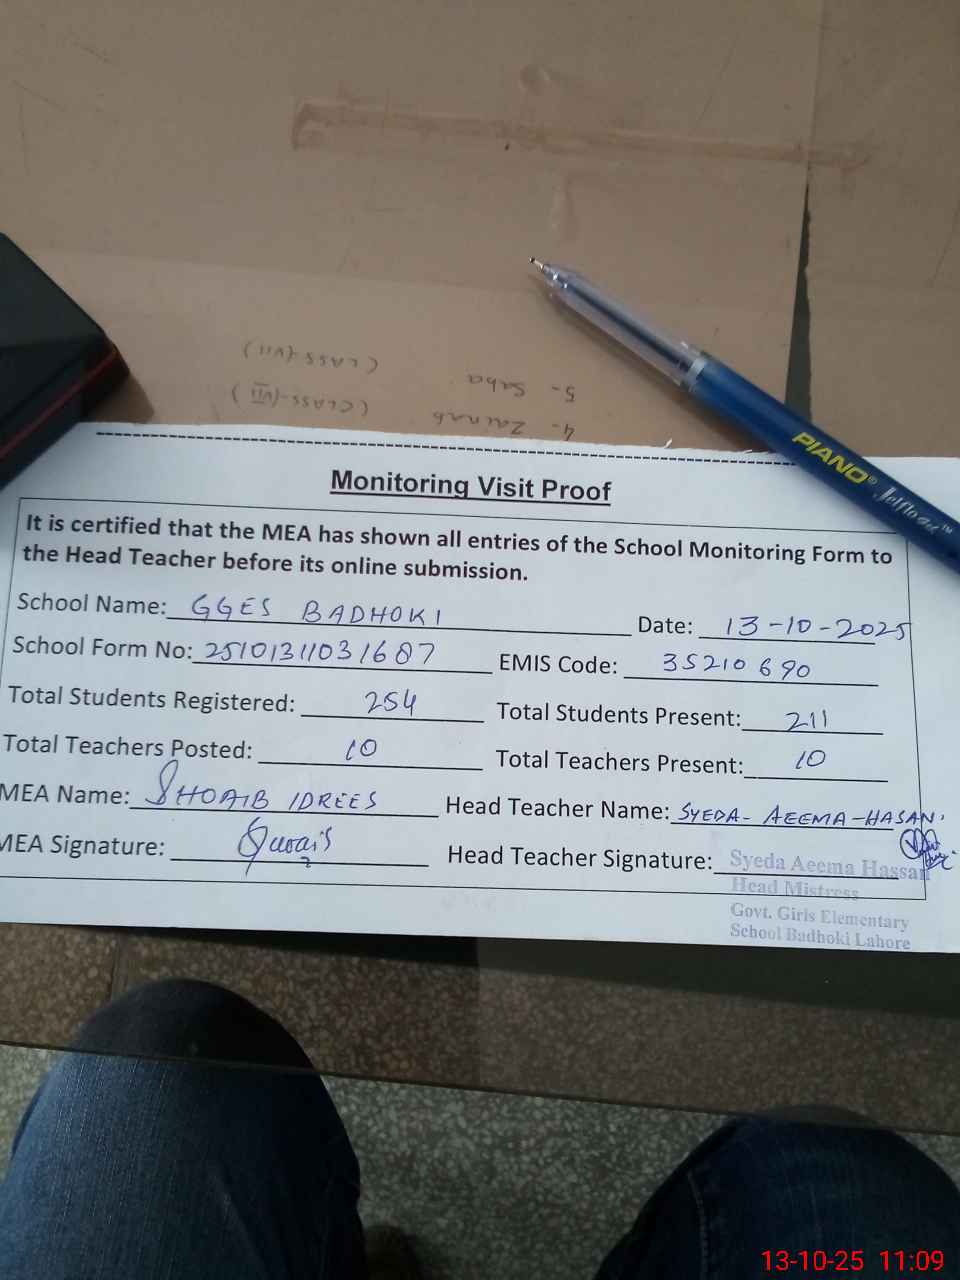 5- Saba (CLASS-(VII)
4- Zainab (CLASS-(VII)
PIANO® Jetflo Gel™
Monitoring Visit Proof
It is certified that the MEA has shown all entries of the School Monitoring Form to
the Head Teacher before its online submission.
School Name: GGES BADHOKI Date: 13-10-2025
School Form No: 25101311031687 EMIS Code: 35210690
Total Students Registered: 254 Total Students Present: 211
Total Teachers Posted: 10 Total Teachers Present: 10
MEA Name: SHOAIB IDREES Head Teacher Name: SYEDA- AEEMA-HASAN.
MEA Signature: Head Teacher Signature:
Syeda Aeema Hassan
Head Mistress
Govt. Girls Elementary
School Badhoki Lahore
13-10-25 11:09